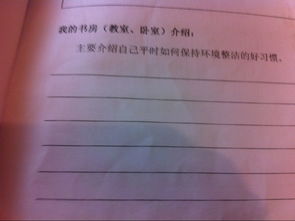 我的书房（教室、卧室）介绍：
主要介绍自己平时如何保持环境整洁的好习惯、